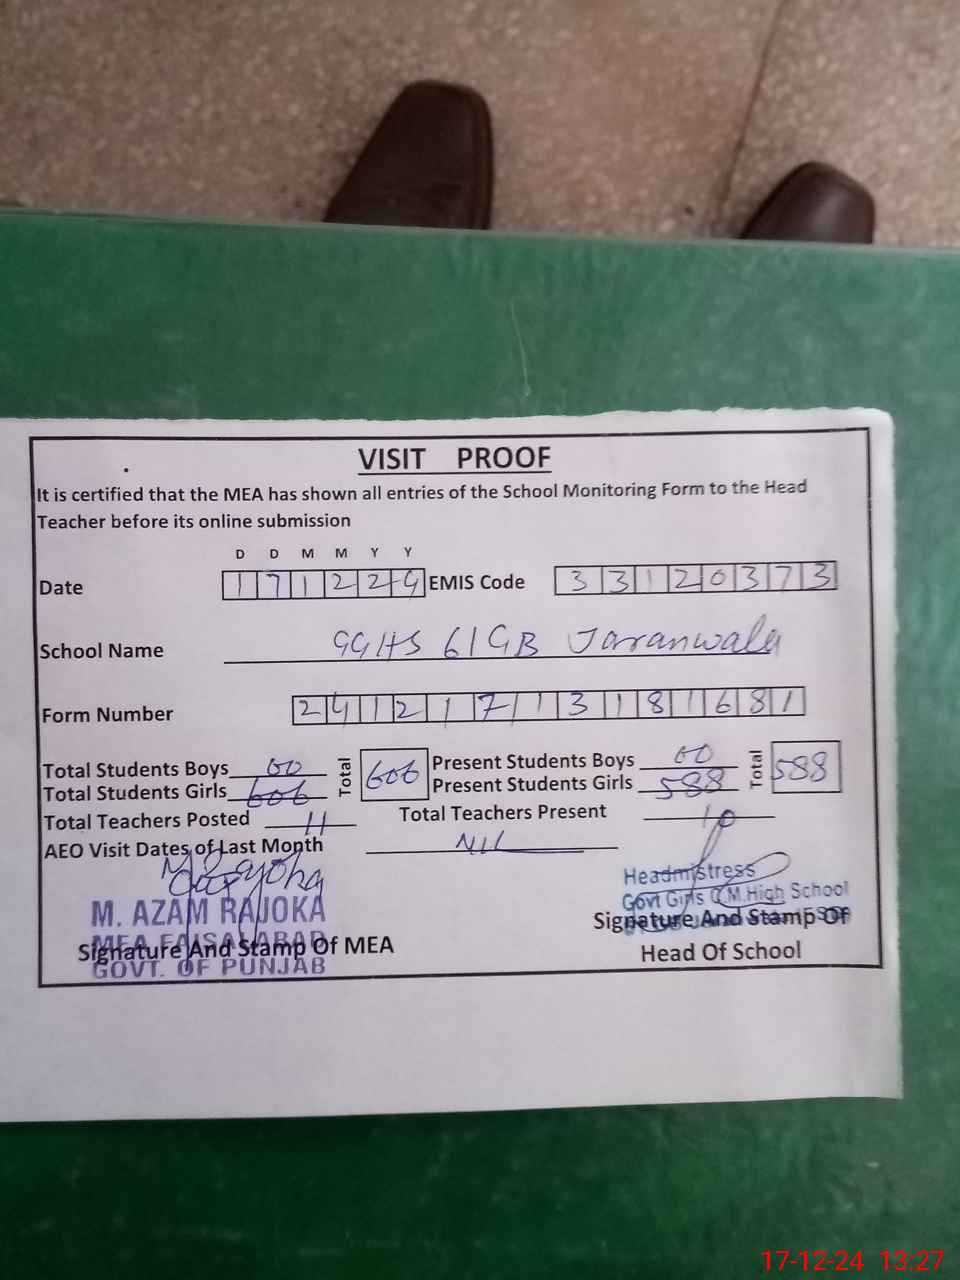 VISIT PROOF
It is certified that the MEA has shown all entries of the School Monitoring Form to the Head
Teacher before its online submission
D D M M Y Y
Date 1 7 1 2 2 4 EMIS Code 3 3 1 2 0 3 7 3
School Name GGHS 61 GB Jaranwala
Form Number 2 4 1 2 1 7 1 3 1 8 1 6 8 1
Total Students Boys 00 Total 606 Present Students Boys 00 Total 588
Total Students Girls 606 Present Students Girls 588
Total Teachers Posted 11 Total Teachers Present 10
AEO Visit Dates of Last Month NIL
M. AZAM RAJOKA
MEA FAISALABAD
GOVT. OF PUNJAB
Signature And Stamp Of MEA
Headmistress
Govt Girls C.M.High School
Signature And Stamp Of
Head Of School
17-12-24 13:27